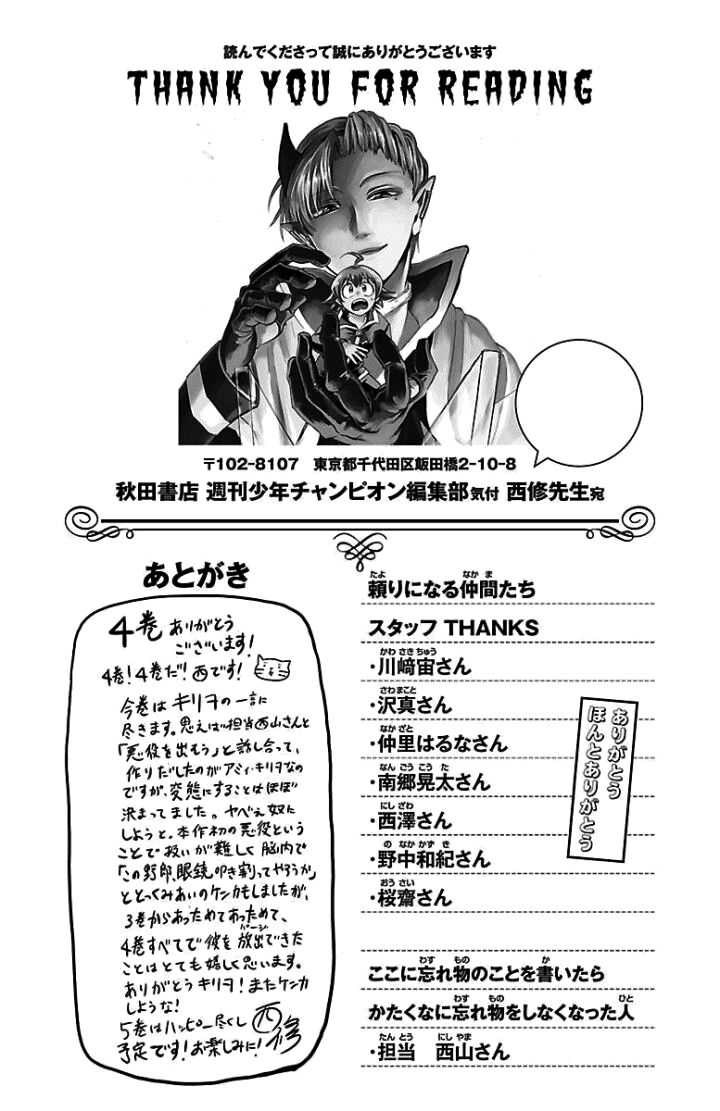 読んでくださって誠にありがとうございます
THANK YOU FOR READING
〒102-8107　東京都千代田区飯田橋2-10-8
秋田書店 週刊少年チャンピオン編集部気付 西修先生宛
あとがき
4巻 ありがとう
ございます!
4巻!4巻だ!西です!
今巻は キリヲの一言に
尽きます。思えば担当西山さんと
「悪役を出もう」と話し合って、
作りだしたのがアミィ・キリヲなの
ですが、変態にすることはほぼ
決まってました。ヤベぇ奴に
しようと。本作初の悪役という
ことで扱いが難しく脳内で
「この野郎、眼鏡叩き割ってやろうか」
ととっくみあいのケンカもしましたが、
3巻からあっためてあっためて、
4巻すべてで彼を放出できた
パージ
ことはとても嬉しく思います。
ありがとうキリヲ!またケンカ
しような!
5巻はハッピー尽くし
予定です!お楽しみに!
西修
たよ なかま
頼りになる仲間たち
スタッフ THANKS
かわさきちゅう
・川﨑宙さん
さわまこと
・沢真さん
なかざと
・仲里はるなさん
なんごうこうた
・南郷晃太さん
にしざわ
・西澤さん
のなかかずき
・野中和紀さん
おうさい
・桜齋さん
ありがとう
ほんとありがとう
わす もの か
ここに忘れ物のことを書いたら
わす もの ひと
かたくなに忘れ物をしなくなった人
たんとう にしやま
・担当　西山さん